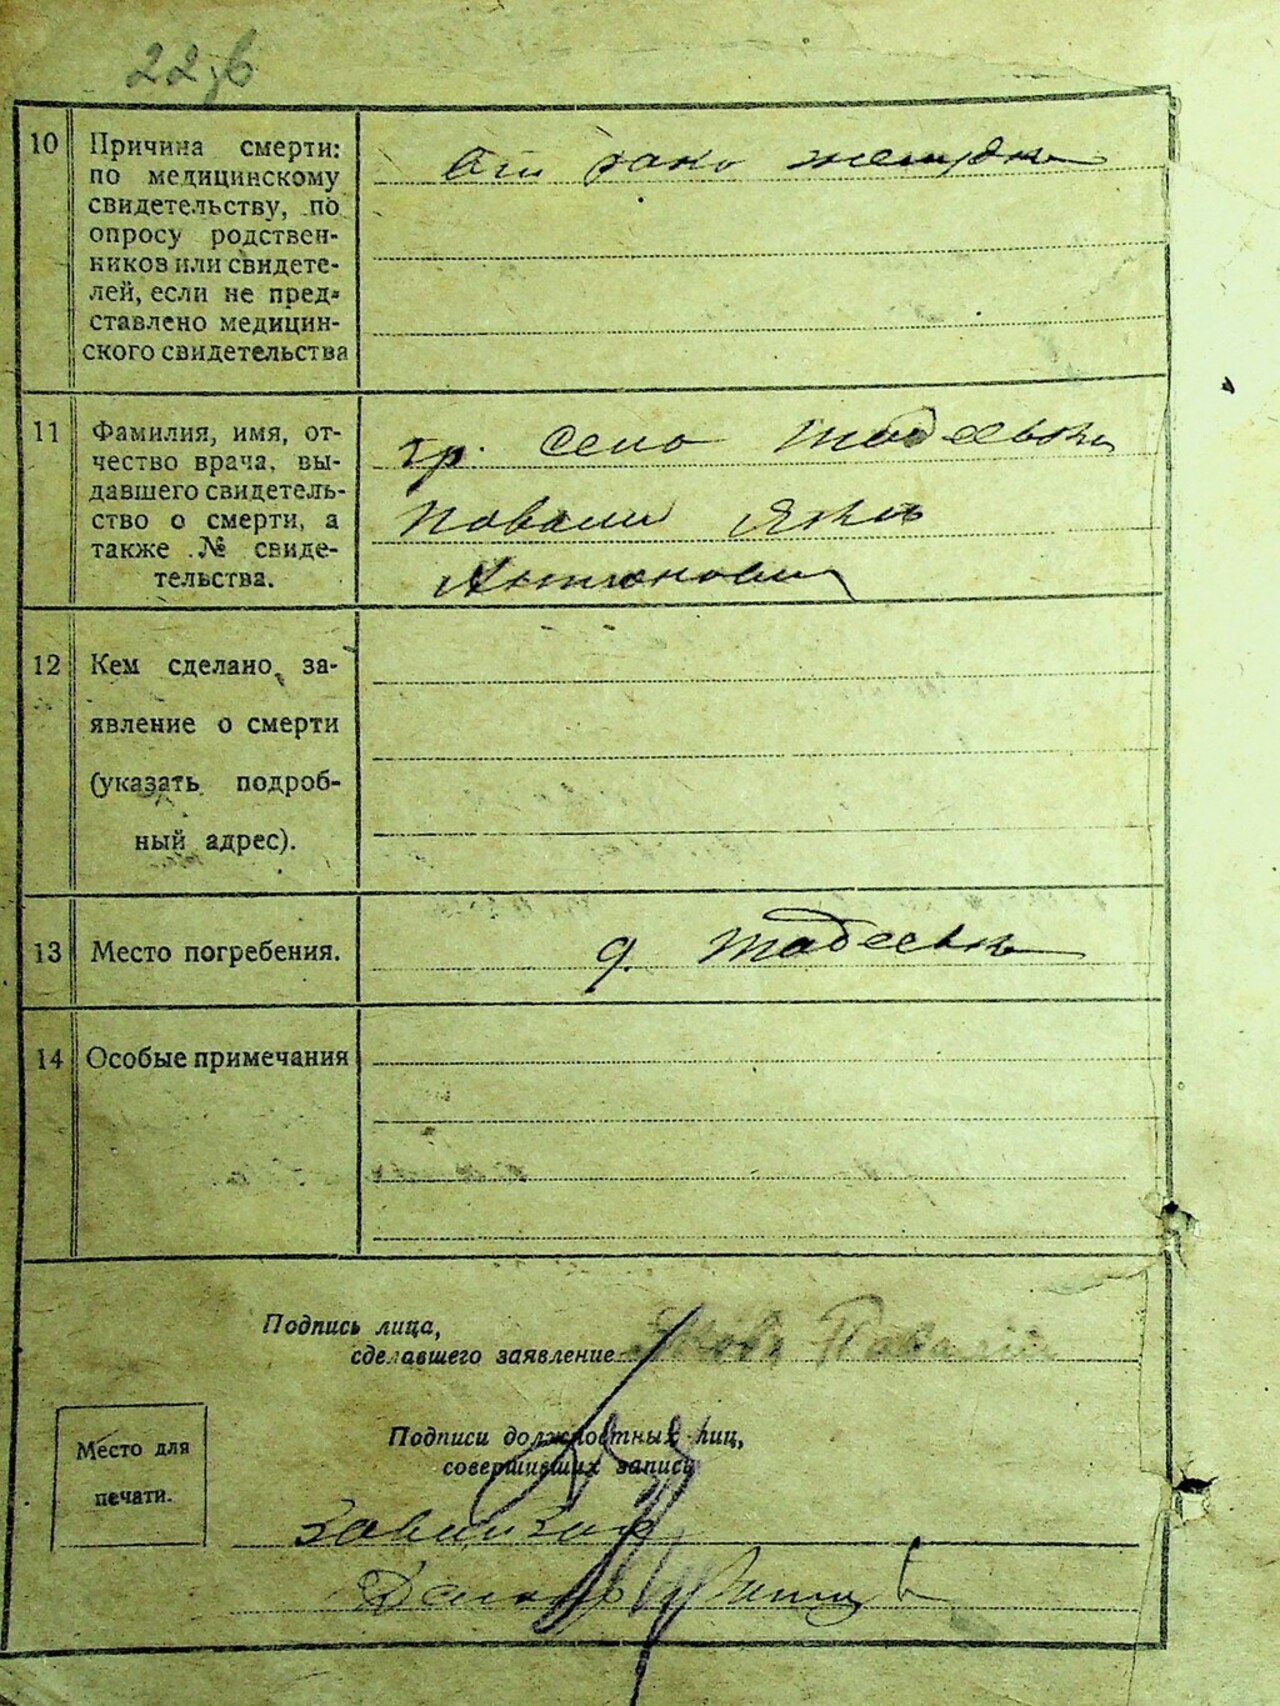 22 об
10 Причина смерти:
по медицинскому
свидетельству, по
опросу родствен-
ников или свидете-
лей, если не пред-
ставлено медицин-
ского свидетельства
От рака желудка
11 Фамилия, имя, от-
чество врача, вы-
давшего свидетель-
ство о смерти, а
также № свиде-
тельства.
гр. село Тадеевка
Ковали Яков
Антонович
12 Кем сделано за-
явление о смерти
(указать подроб-
ный адрес).
13 Место погребения.
д. Тадеевка
14 Особые примечания
Подпись лица,
сделавшего заявление
Место для
печати.
Подписи должностных лиц,
совершивших запись